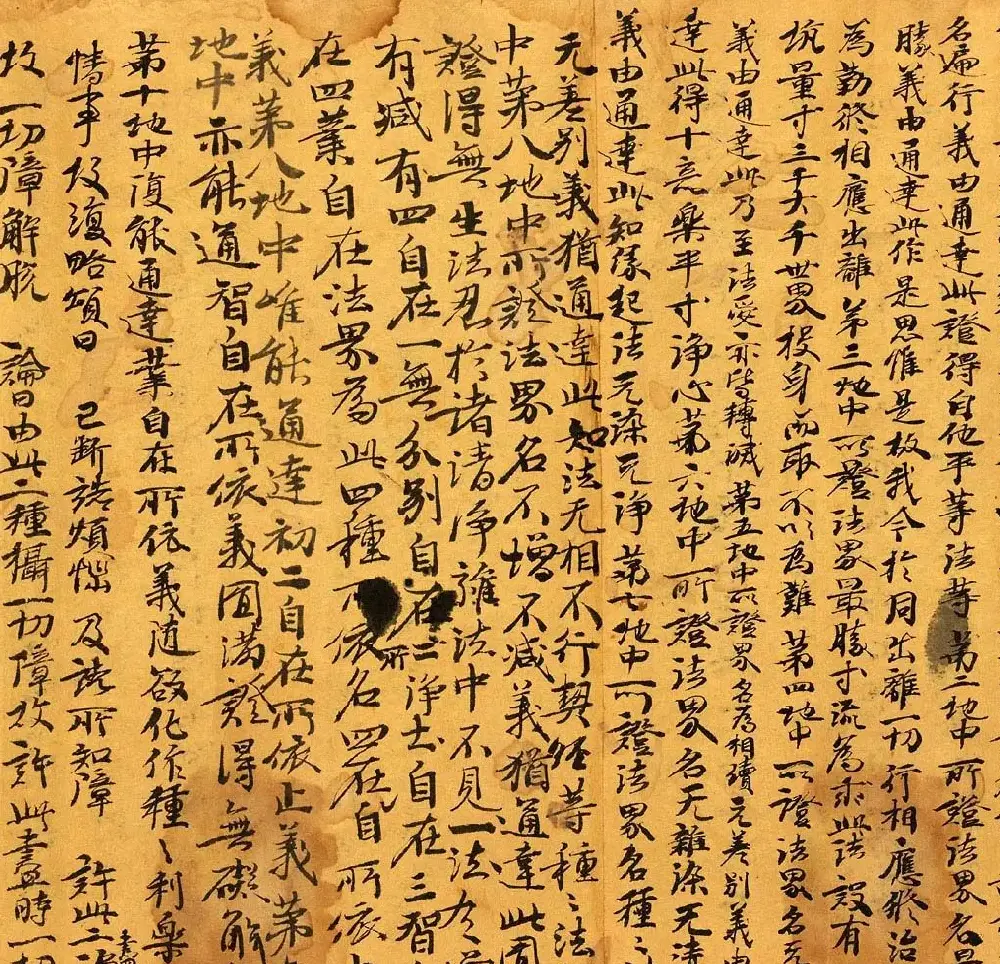 名遍行義由通達此證得自他平等法等 第二地中所證法界名最
勝義由通達此作是思惟是故我今於同出離一切行相應修治
為勤修相應出離 第三地中所證法界最勝等流為求此法設有
坑量等三千大千世界投身而取不以為難 第四地中所證法界名无
義由通達此乃至法愛亦皆轉滅 第五地中所證界名為相續无差別義由
達此得十意樂平等淨心 第六地中所證法界名无雜染无清
義由通達此知緣起法无染无淨 第七地中所證法界名種〻
无差別義猶通達此知法无相不行契經等種〻法
中第八地中所證法界名不增不減義猶通達此圓
證得無生法忍於諸清淨雜法中不見一法有
有減有四自在一無分別自在二淨土自在三智自
在四業自在法界為此四種所依名四在自所依
義第八地中唯能通達初二自在所依止義第九
地中亦能通智自在所依義圓滿證得無礙解
第十地中復能通達業自在所依義隨欲化作種〻利樂
情事故復略頌曰 已斷諸煩惱 及諸所知障 許此二
故一切障解脫 論曰由此二種攝一切障故許此盡時一切